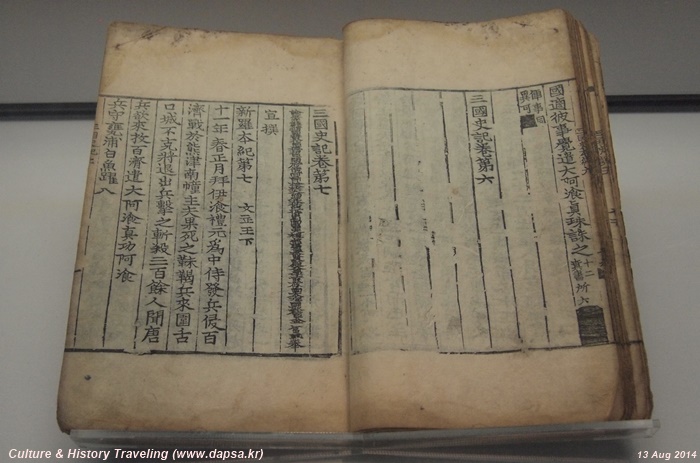 國適彼事覺遣大阿飡眞珠誅之十二
異可
三國史記卷第六
三國史記卷第七
宣撰
新羅本紀第七 文武王下
十一年春正月拜伊飡禮元爲中侍發兵侵百
濟戰於熊津南幢主夫果死之靺鞨兵來圍古
口城不克將退出兵擊之斬殺三百餘人聞唐
兵欲來救百濟遣大阿飡眞功阿飡
兵守甕浦白魚躍入
Culture & History Traveling (www.dapsa.kr)
13 Aug 2014